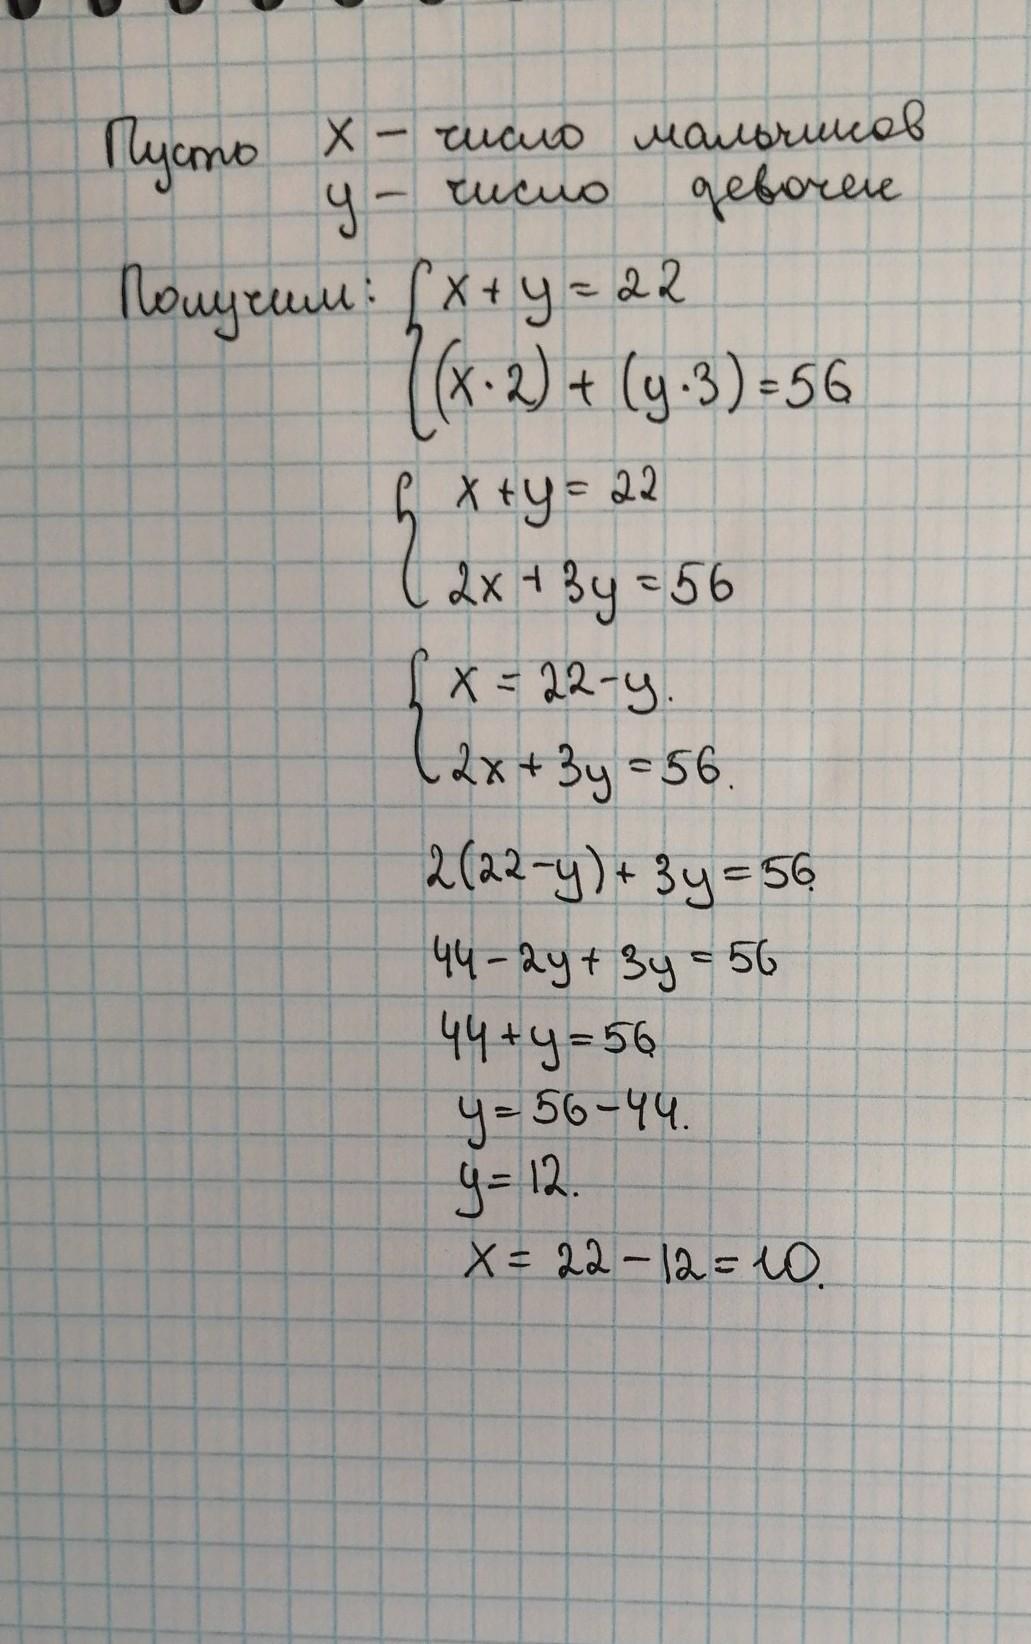 Пусть x – число мальчиков
y – число девочек
Получим: { x + y = 22
(x · 2) + (y · 3) = 56
{ x + y = 22
2x + 3y = 56
{ x = 22 – y.
2x + 3y = 56.
2(22 – y) + 3y = 56
44 – 2y + 3y = 56
44 + y = 56
y = 56 – 44.
y = 12.
x = 22 – 12 = 10.